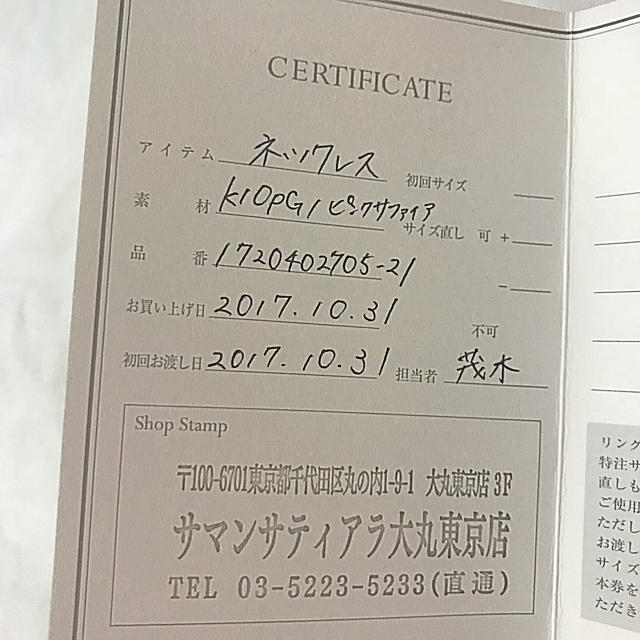 CERTIFICATE
アイテム ネックレス 初回サイズ
素材 K10PG/ピンクサファイア
サイズ直し 可 +
品番 1720402705-21
-
お買い上げ日 2017.10.31
不可
初回お渡し日 2017.10.31 担当者 茂木
Shop Stamp
〒100-6701東京都千代田区丸の内1-9-1 大丸東京店 3F
サマンサティアラ大丸東京店
TEL 03-5223-5233(直通)
リング
特注サ
直しも
ご使用
ただし
お渡し
サイズ
本券を
ただき